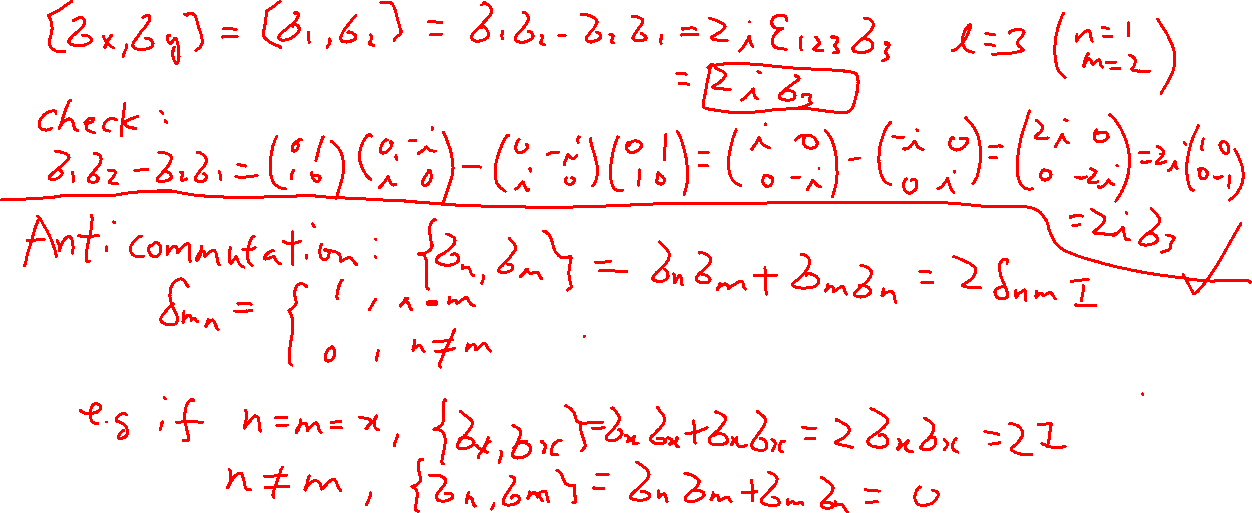 [σx, σy] = [σ1, σ2] = σ1σ2 - σ2σ1 = 2i ε123 σ3   l=3 (n=1 m=2)
= 2iσ3
check:
σ1σ2 - σ2σ1 = (0 1 1 0)(0 -i i 0) - (0 -i i 0)(0 1 1 0) = (i 0 0 -i) - (-i 0 0 i) = (2i 0 0 -2i) = 2i(1 0 0 -1)
= 2iσ3 ✓
Anti commutation: {σn, σm} = σnσm + σmσn = 2δnm I
δmn = { 1, n=m
0, n≠m
e.g if n=m=x, {σx, σx} = σxσx + σxσx = 2σxσx = 2I
n≠m, {σn, σm} = σnσm + σmσn = 0